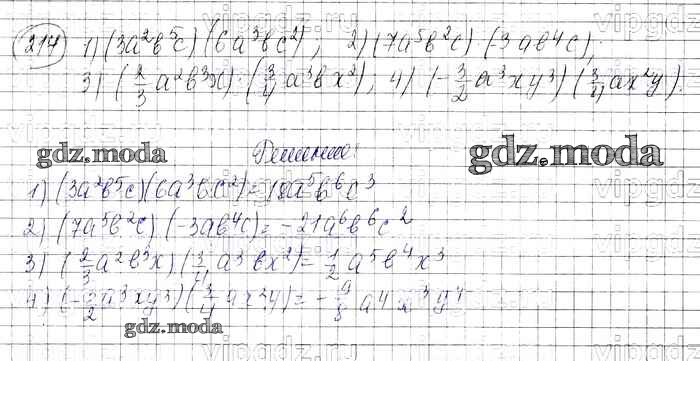 217 1) (3a²b⁵c) (6a³bc²), 2) (7a⁵b²c) (3ab⁴c),
3) (2/3 a²b³x) (3/4 a³bx²), 4) (-3/2 a³xy³) (3/4 ax²y).
gdz.moda
Решение:
gdz.moda
1) (3a²b⁵c)(6a³bc²) = 18a⁵b⁶c³
2) (7a⁵b²c) (-3ab⁴c) = -21a⁶b⁶c²
3) (2/3 a²b³x) (3/4 a³bx²) = 1/2 a⁵b⁴x³
4) (-3/2 a³xy³) (3/4 ax²y) = -9/8 a⁴x³y⁴
gdz.moda
vipgdz.ru